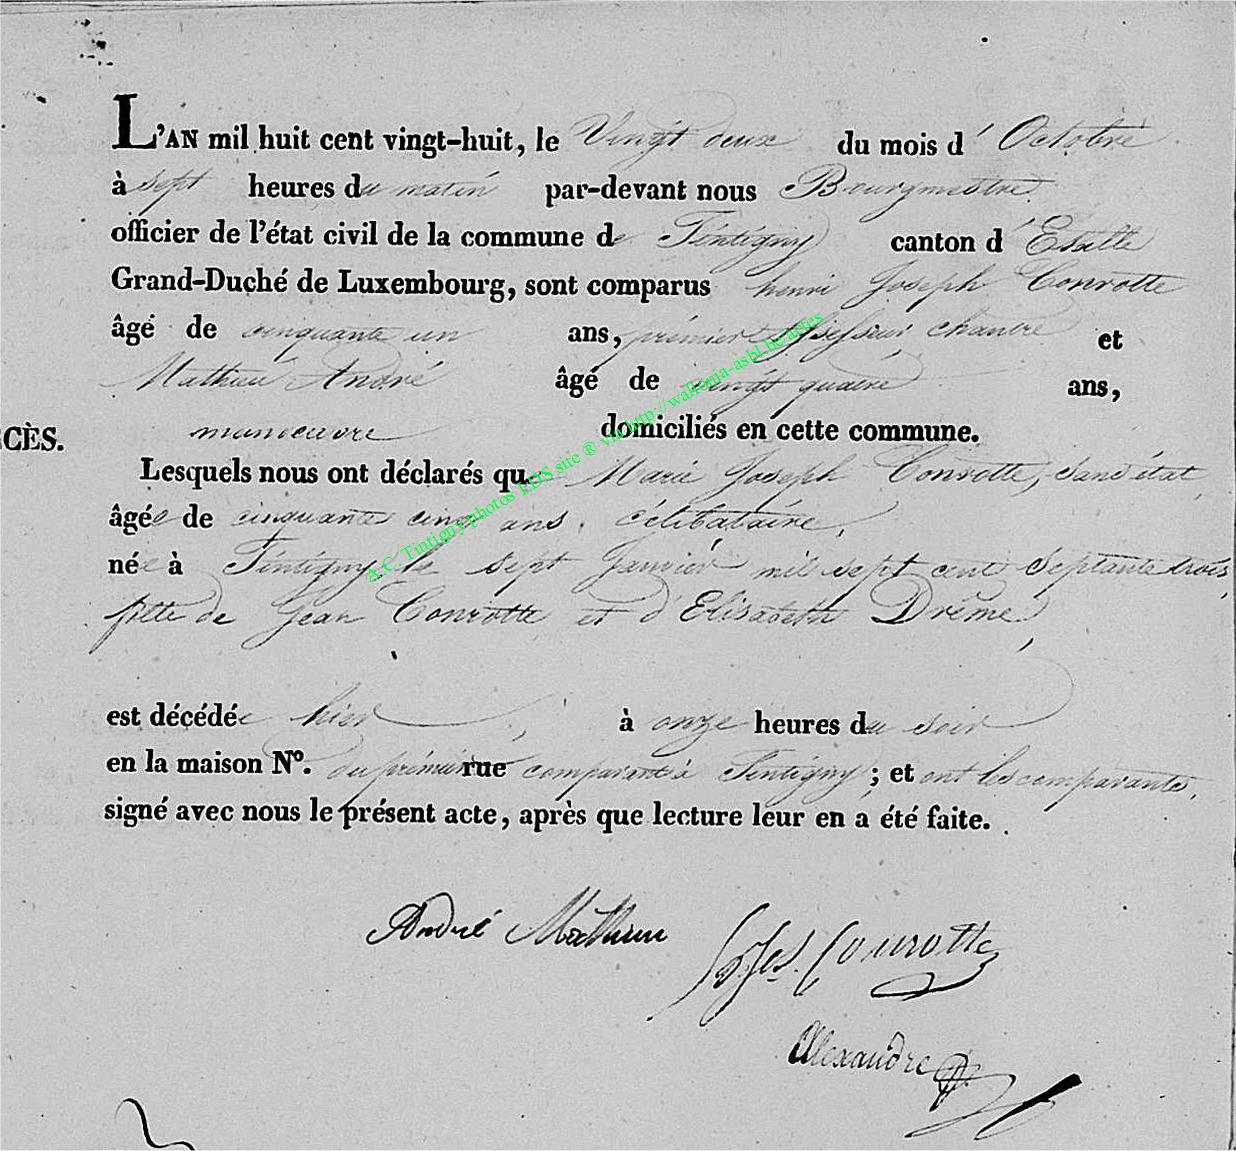 L'AN mil huit cent vingt-huit, le Vingt deux du mois d' Octobre
à sept heures du matin par-devant nous Bourgmestre
officier de l'état civil de la commune de Tintigny canton d' Etalle
Grand-Duché de Luxembourg, sont comparus henri Joseph Conrotte
âgé de cinquante un ans, prémier assesseur chantre et
Mathieu André âgé de vingt quatre ans,
CÈS. manoeuvre domiciliés en cette commune.
Lesquels nous ont déclarés que Marie Joseph Conrotte, sans état
âgée de cinquante cinq ans, célibataire,
née à Tintigny le sept Janvier mil sept cent septante trois,
fille de Jean Conrotte et d'Elisabeth Drême
est décédée hier, à onze heures du soir
en la maison N°. du prémier rue comparant à Tintigny; et ont les comparants,
signé avec nous le présent acte, après que lecture leur en a été faite.
A.C. Tintigny photos LDS site ® via http://wallonia-asbl.be/actes
André Mathieu Conrotte
Alexandre